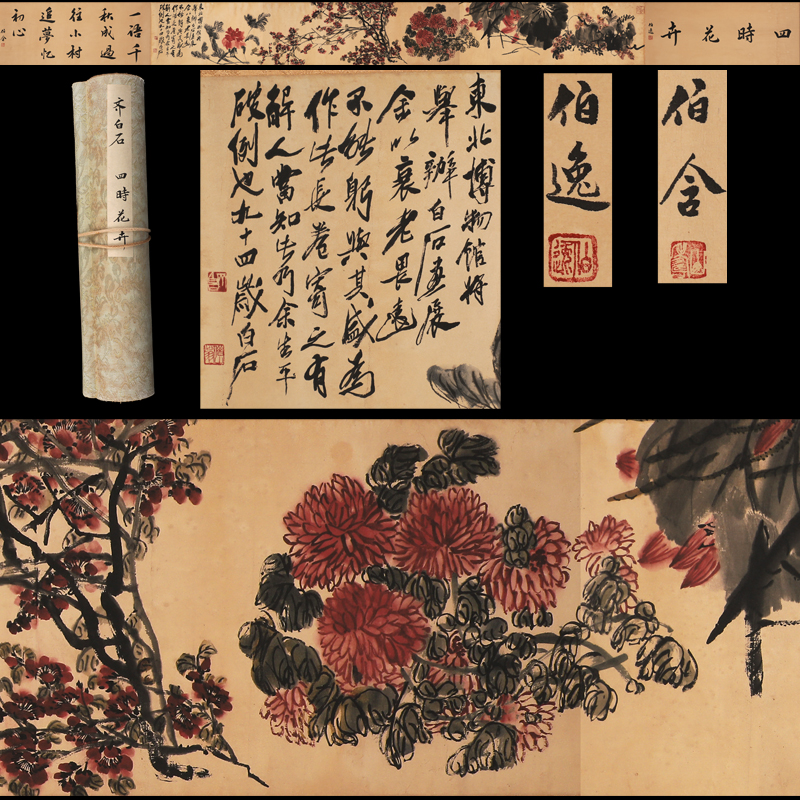 四時花卉
一語千
秋成過
往小村
追夢忆
初心
齐白石 四時花卉
東北博物館將
舉辦白石畫展
余以衰老畏遠
不能躬與其盛為
作此長卷寄之有
解人當知此乃余生平
破例也九十四歲白石
伯逸
伯逸
伯含